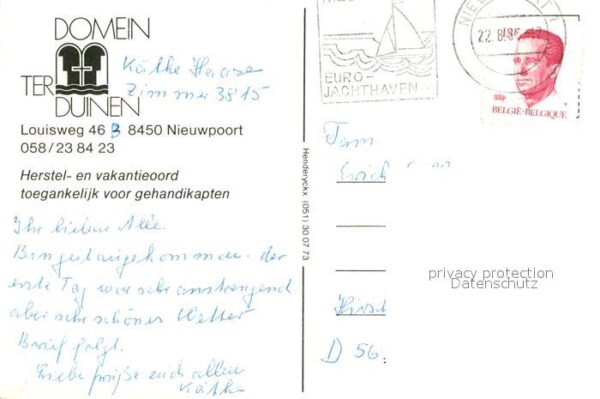 DOMEIN
TER
DUINEN
Käthe Haase
Zimmer 3815
Louisweg 46 B 8450 Nieuwpoort
058/23 84 23
Herstel- en vakantieoord
toegankelijk voor gehandikapten
Ihr lieben Alle.
Bin gut angekommen. der
erste Tag war sehr anstrengend
aber sehr schönes Wetter
Brief folgt.
Liebe Grüße euch allen
Käthe
Henderyckx (051) 30 07 73
EURO-
JACHTHAVEN
22.8.86-17
BELGIË-BELGIQUE
Fam
Erich
privacy protection
Datenschutz
D 56